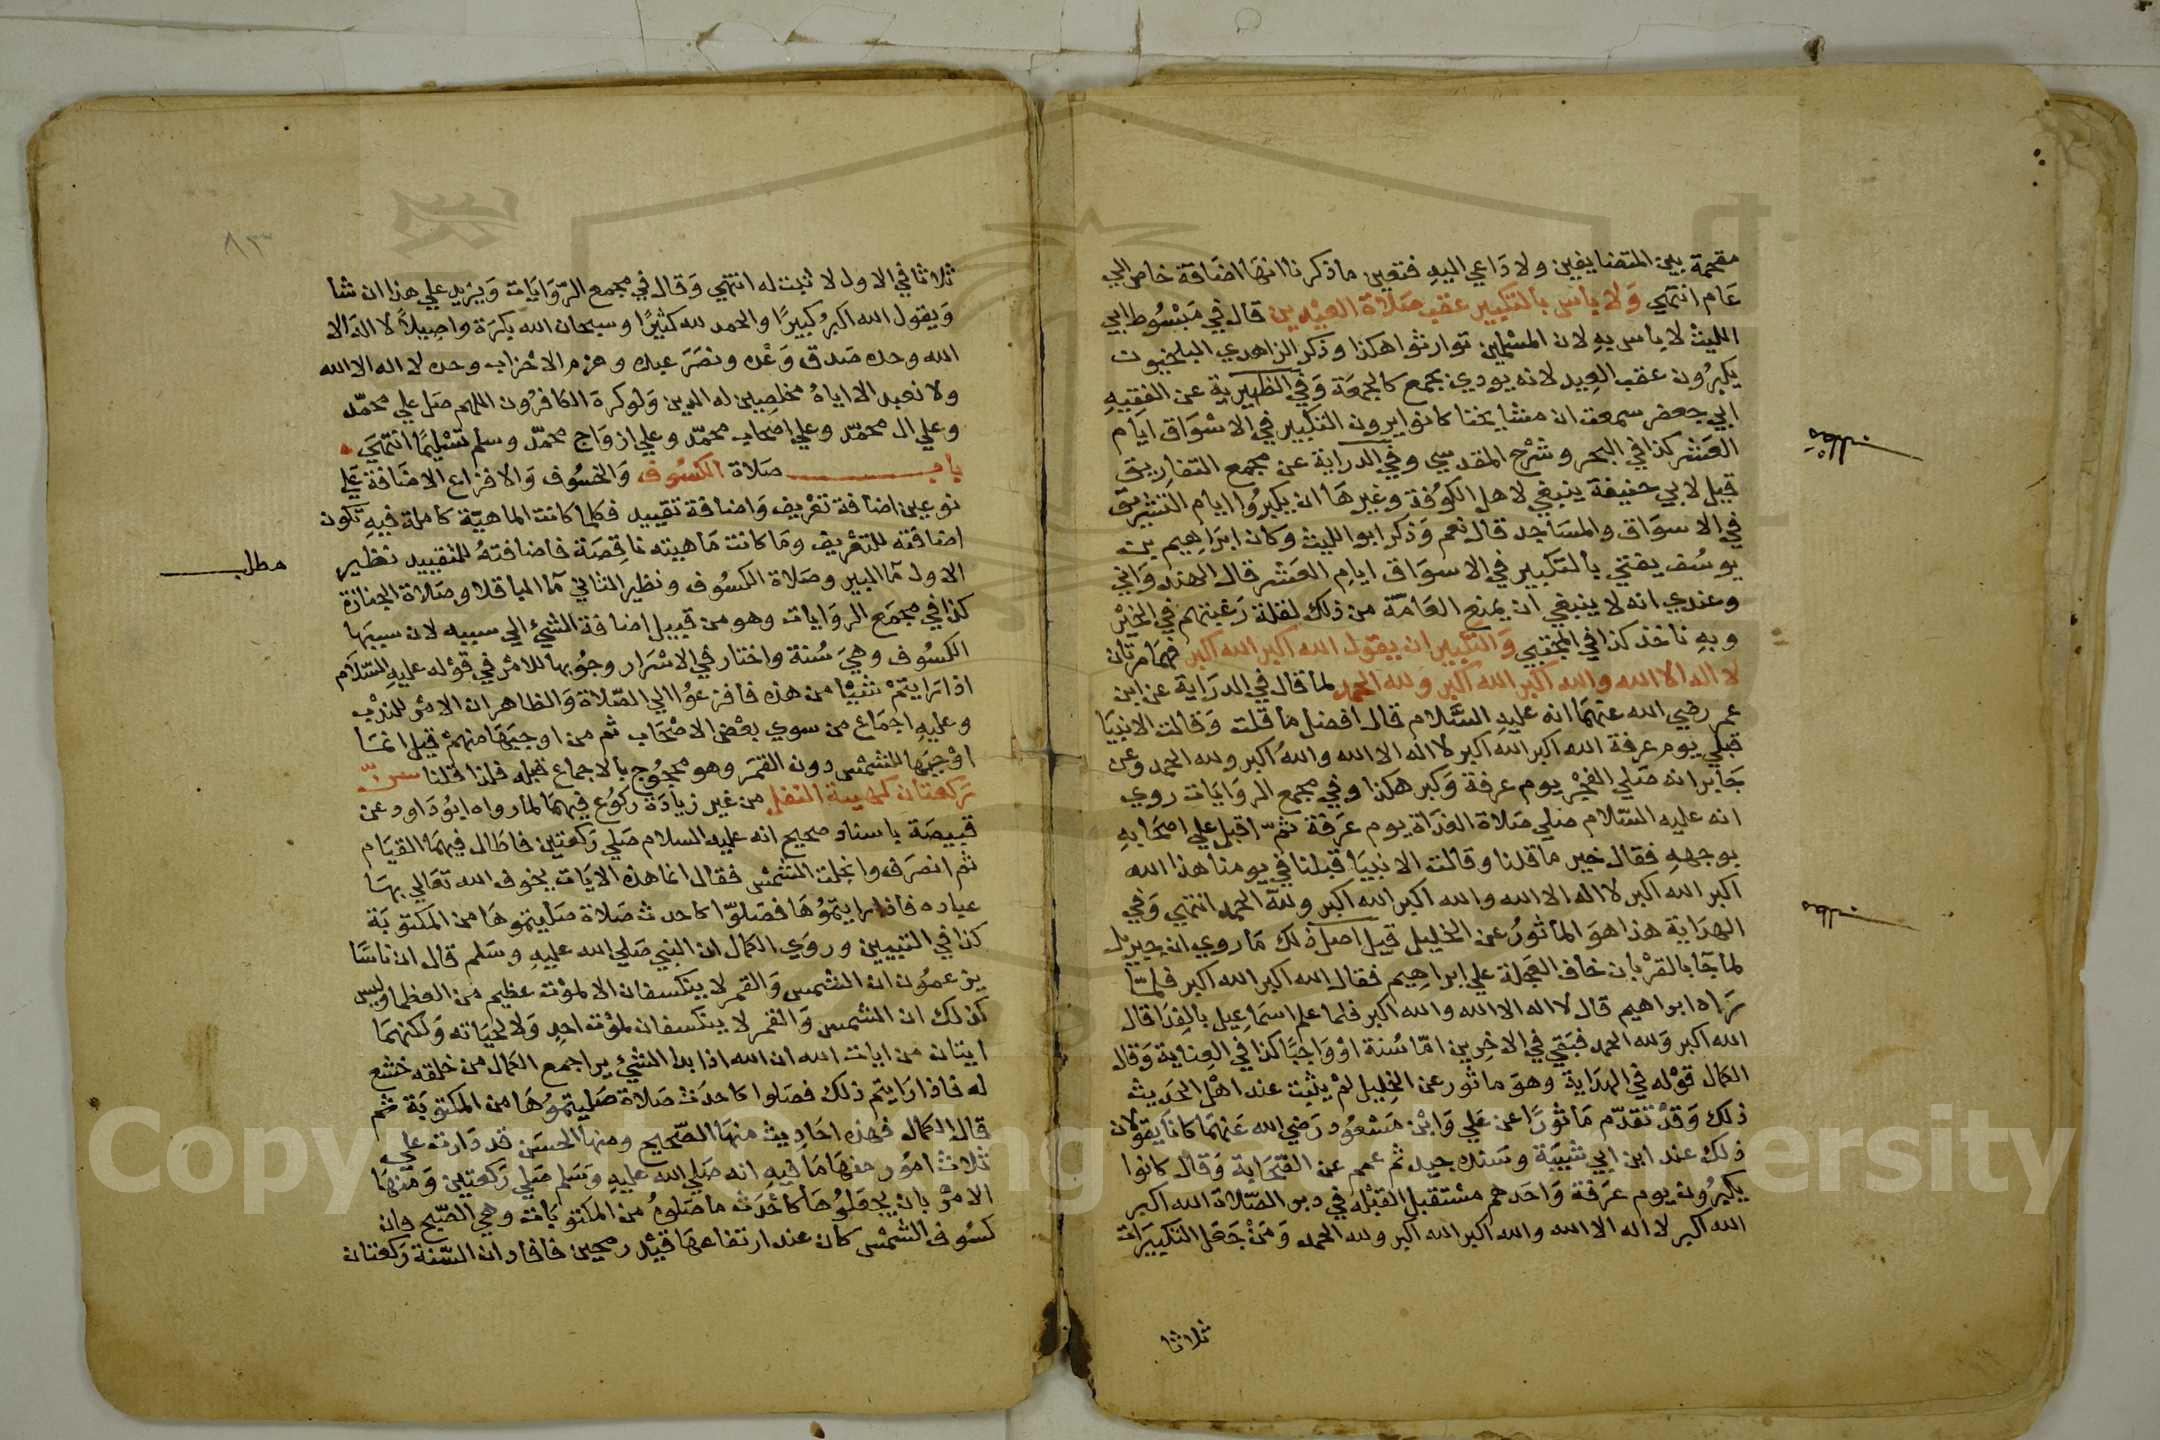 مقحمة بين المتضايفين ولا داعي اليه فتعين ما ذكرنا انها اضافة خاص الي
عام انتهي ولا باس بالتكبير عقب صلاة العيدين قال في مبسوط ابي
الليث لا باس به لان المسلمين توارثوا هكذا وذكر الزاهدي البلخيون
يكبرون عقب العيد لانه يودي بجمع كالجمعة وفي الظهيرية عن الفقيه
ابي جعفر سمعت ان مشايخنا كانوا يرون التكبير في الاسواق ايام
العشر كذا في البحر وشرح المقدسي وفي الدراية عن مجمع التفاريق
قيل لابي حنيفة ينبغي لاهل الكوفة وغيرها ان يكبروا ايام التشريق
في الاسواق والمساجد قال نعم وذكر ابو الليث وكان ابراهيم بن
يوسف يفتي بالتكبير في الاسواق ايام العشر قال الهندواني
وعندي انه لا ينبغي ان يمنع العامة من ذلك لقلة رغبتهم في الخير
وبه ناخذ كذا في المجتبي والتكبير ان يقول الله اكبر الله اكبر فهما مرتان
لا اله الا الله والله اكبر الله اكبر ولله الحمد لما قال في الدراية عن ابن
عمر رضي الله عنهما انه عليه السلام قال افضل ما قلت وقالت الانبيا
قبلي يوم عرفة الله اكبر الله اكبر لا اله الا الله والله اكبر ولله الحمد وعن
جابر انه صلي الفجر يوم عرفة وكبر هكذا وفي مجمع الروايات روي
انه عليه السلام صلي صلاة الغداة يوم عرفة ثم اقبل علي اصحابه
بوجهه فقال خير ما قلنا وقالت الانبيا قبلنا في يومنا هذا الله
اكبر الله اكبر لا اله الا الله والله اكبر الله اكبر ولله الحمد انتهي وفي
الهداية هذا هو الماثور عن الخليل قيل اصل ذلك ما روي ان جبريل
لما جا بالقربان خاف العجلة علي ابراهيم فقال الله اكبر الله اكبر فلما
راه ابراهيم قال لا اله الا الله والله اكبر فلما علم اسماعيل بالفدا قال
الله اكبر ولله الحمد فبقي في الاخرين اما سنة او واجبا كذا في العناية وقال
الكمال قوله في الهداية وهو ماثور عن الخليل لم يثبت عند اهل الحديث
ذلك وقد تقدم ماثورا عن علي وابن مسعود رضي الله عنهما كانا يقولان
ذلك عند ابن ابي شيبة وسنده جيد ثم عمم عن الصحابة وقال كانوا
يكبرون يوم عرفة واحدهم مستقبل القبلة في دبر الصلاة الله اكبر
الله اكبر لا اله الا الله والله اكبر الله اكبر ولله الحمد ومن جعل التكبيرات
ثلاثا
مطلب
مطلب
٨٣
ثلاثا في الاول لا ثبت له انتهي وقال في مجمع الروايات ويزيد علي هذا ان شا
ويقول الله اكبر كبيرا والحمد لله كثيرا وسبحان الله بكرة واصيلا لا اله الا
الله وحده صدق وعده ونصر عبده وهزم الاحزاب وحده لا اله الا الله
ولا نعبد الا اياه مخلصين له الدين ولو كره الكافرون اللهم صل علي محمد
وعلي ال محمد وعلي اصحاب محمد وعلي ازواج محمد وسلم تسليما انتهي
باب صلاة الكسوف والخسوف والافزاع الاضافة علي
نوعين اضافة تعريف واضافة تقييد فكلما كانت الماهية كاملة فيه تكون
اضافته للتعريف وما كانت ماهيته ناقصة فاضافته للتقييد نظير
الاول ما البير وصلاة الكسوف ونظير الثاني ما الباقلا وصلاة الجنازة
كذا في مجمع الروايات وهو من قبيل اضافة الشيء الي سببه لان سببها
الكسوف وهي سنة واختار في الاسرار وجوبها للامر في قوله عليه السلام
اذا رايتم شيئا من هذه فافزعوا الي الصلاة والظاهر ان الامر للندب
وعليه اجماع من سوي بعض الاصحاب ثم من اوجبها منهم قيل انما
اوجبها للشمس دون القمر وهو محجوج بالاجماع قبله فلذا قلنا سن
ركعتان كهيية النفل من غير زيادة ركوع فيهما لما رواه ابو داود عن
قبيصة باسناد صحيح انه عليه السلام صلي ركعتين فاطال فيهما القيام
ثم انصرف وانجلت الشمس فقال انما هذه الايات يخوف الله تعالي بها
عباده فاذا رايتموها فصلوا كاحدث صلاة صليتموها من المكتوبة
كذا في التبيين وروي الكمال ان النبي صلي الله عليه وسلم قال ان ناسا
يزعمون ان الشمس والقمر لا ينكسفان الا لموت عظيم من العظما وليس
كذلك ان الشمس والقمر لا ينكسفان لموت احد ولا لحياته ولكنهما
ايتان من ايات الله ان الله اذا بدا لشيء من خلقه خشع
له فاذا رايتم ذلك فصلوا كاحدث صلاة صليتموها من المكتوبة ثم
قال الكمال فهذه احاديث منها الصحيح ومنها الحسن قد دارت علي
ثلاث امور منها ما فيه انه صلي الله عليه وسلم صلي ركعتين ومنها
الامر بان يجعلوها كاحدث ما صلوه من المكتوبات وهي الصبح فان
كسوف الشمس كان عند ارتفاعها قيد رمحين فافاد ان السنة ركعتان
مطلب
Copyright © King Saud University